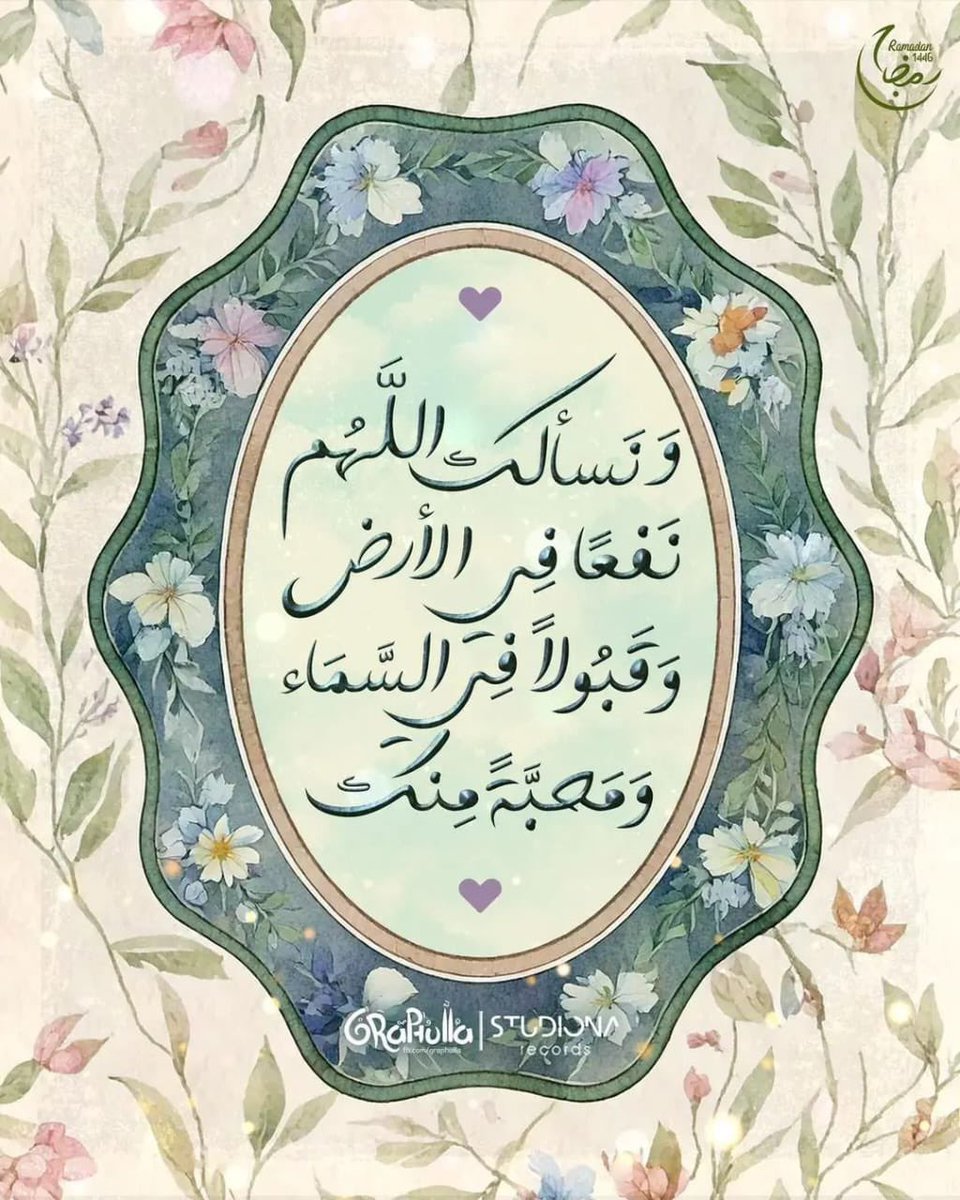 Ramadan
1446
رمضان
وَنَسألك اللَّهُم
نَفعًا فِي الأرض
وَقَبُولاً فِي السَّمَاء
وَمَحبَّةً مِنك
GRaPHulla | STUDIONA records
fb.com/graphulla